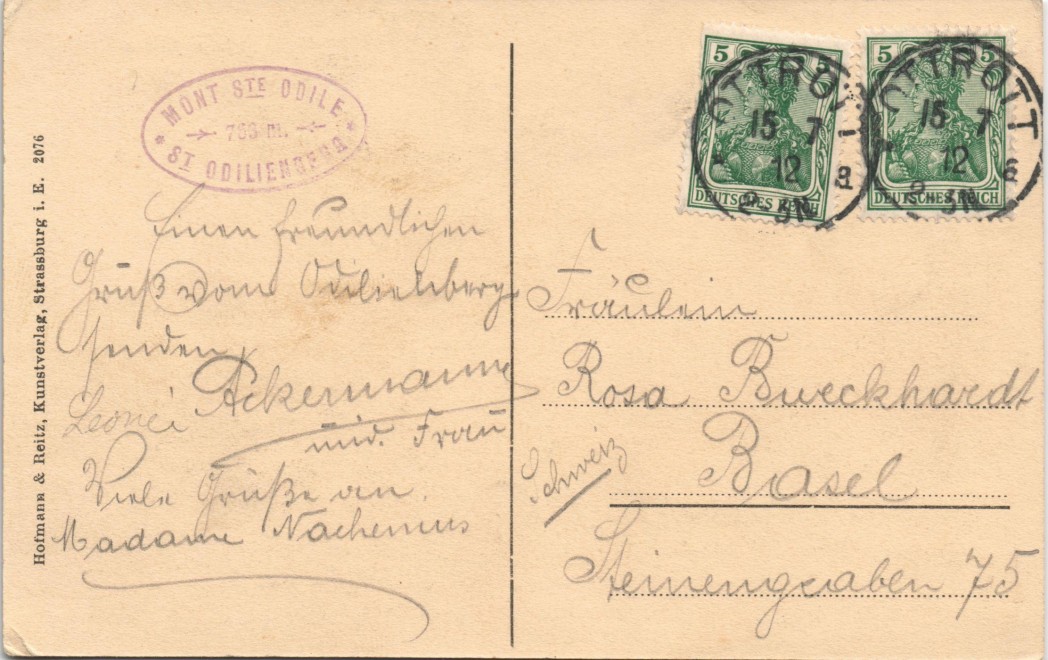 Hofmann & Reitz, Kunstverlag, Strassburg i. E. 2076
MONT STE ODILE
763 m.
ST ODILIENBERG
Einen freundlichen
Gruß vom Odilienberg
senden
Ackermann
Leonci
und. Frau
Viele Grüße an
Madame Nachemus
5 5
DEUTSCHES REICH
OTTROTT
15 7
12
2-3N
a
5 5
DEUTSCHES REICH
OTTROTT
15 7
12
2-3N
a
Fräulein
Rosa Bueckhardt
Basel
Schweiz
Steinengraben 75